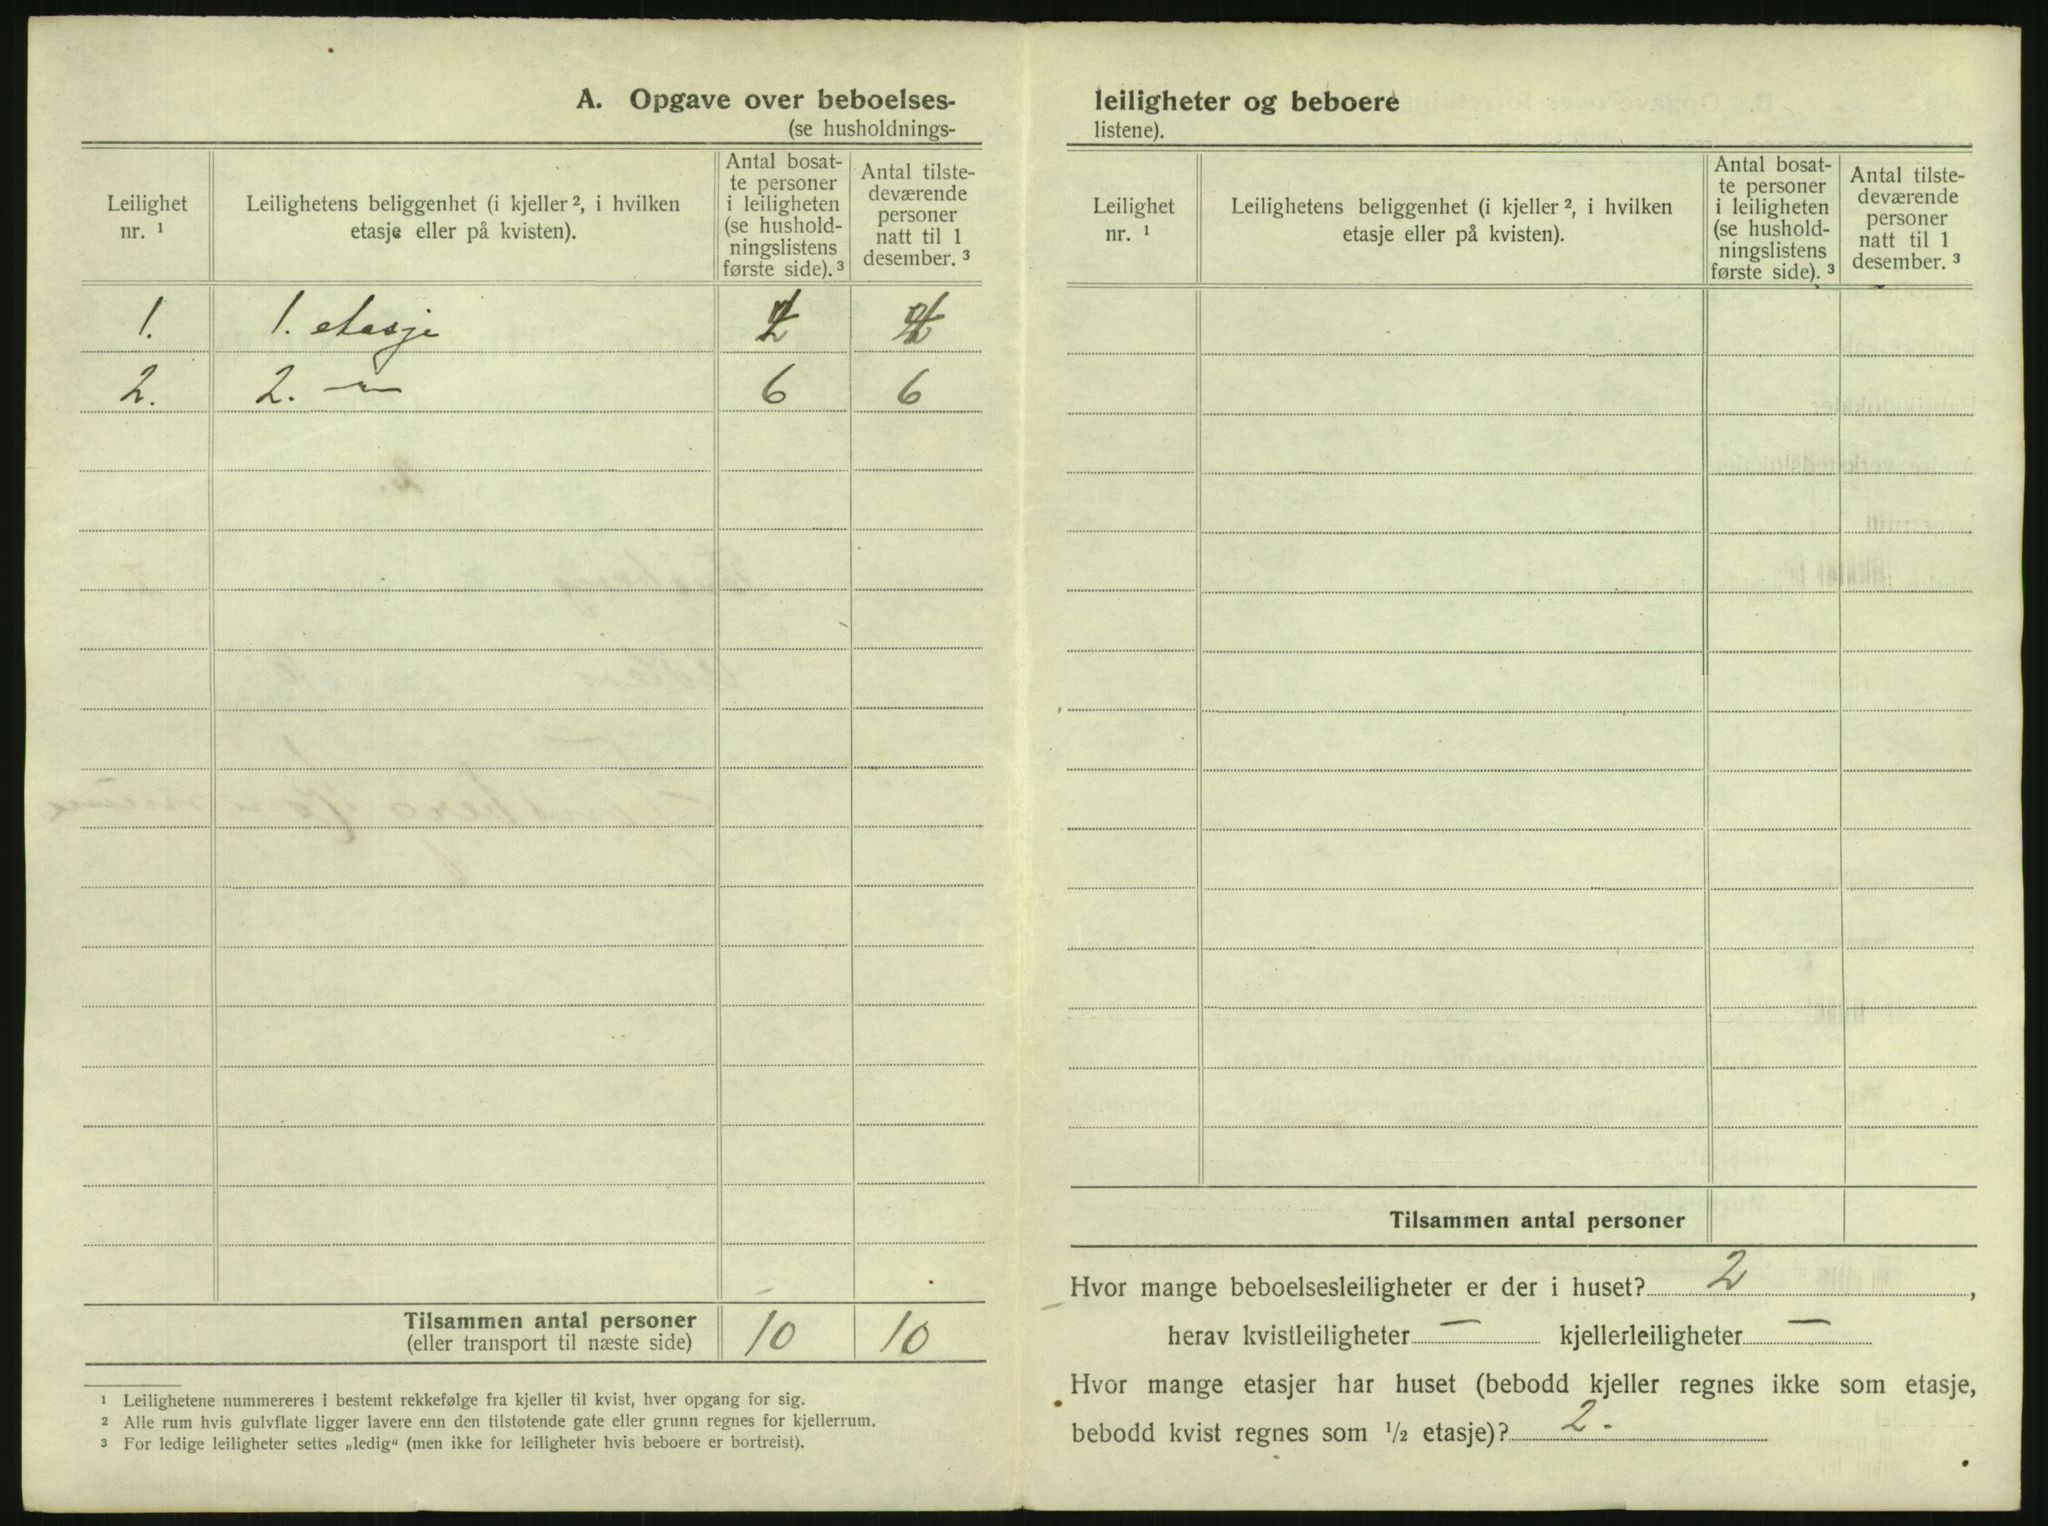 A. Opgave over beboelses-
(se husholdnings-
Leilighet
nr. ¹
Leilighetens beliggenhet (i kjeller ², i hvilken
etasje eller på kvisten).
Antal bosat-
te personer
i leiligheten
(se hushold-
ningslistens
første side). ³
Antal tilste-
deværende
personer
natt til 1
desember. ³
1. 1. etasje
2. 2. — 6 6
Tilsammen antal personer
(eller transport til næste side)
10 10
¹ Leilighetene nummereres i bestemt rekkefølge fra kjeller til kvist, hver opgang for sig.
² Alle rum hvis gulvflate ligger lavere enn den tilstøtende gate eller grunn regnes for kjellerrum.
³ For ledige leiligheter settes „ledig“ (men ikke for leiligheter hvis beboere er bortreist).
leiligheter og beboere
listene).
Leilighet
nr. ¹
Leilighetens beliggenhet (i kjeller ², i hvilken
etasje eller på kvisten).
Antal bosat-
te personer
i leiligheten
(se hushold-
ningslistens
første side). ³
Antal tilste-
deværende
personer
natt til 1
desember. ³
Tilsammen antal personer
Hvor mange beboelsesleiligheter er der i huset? 2,
herav kvistleiligheter — kjellerleiligheter —
Hvor mange etasjer har huset (bebodd kjeller regnes ikke som etasje,
bebodd kvist regnes som ½ etasje)? 2.